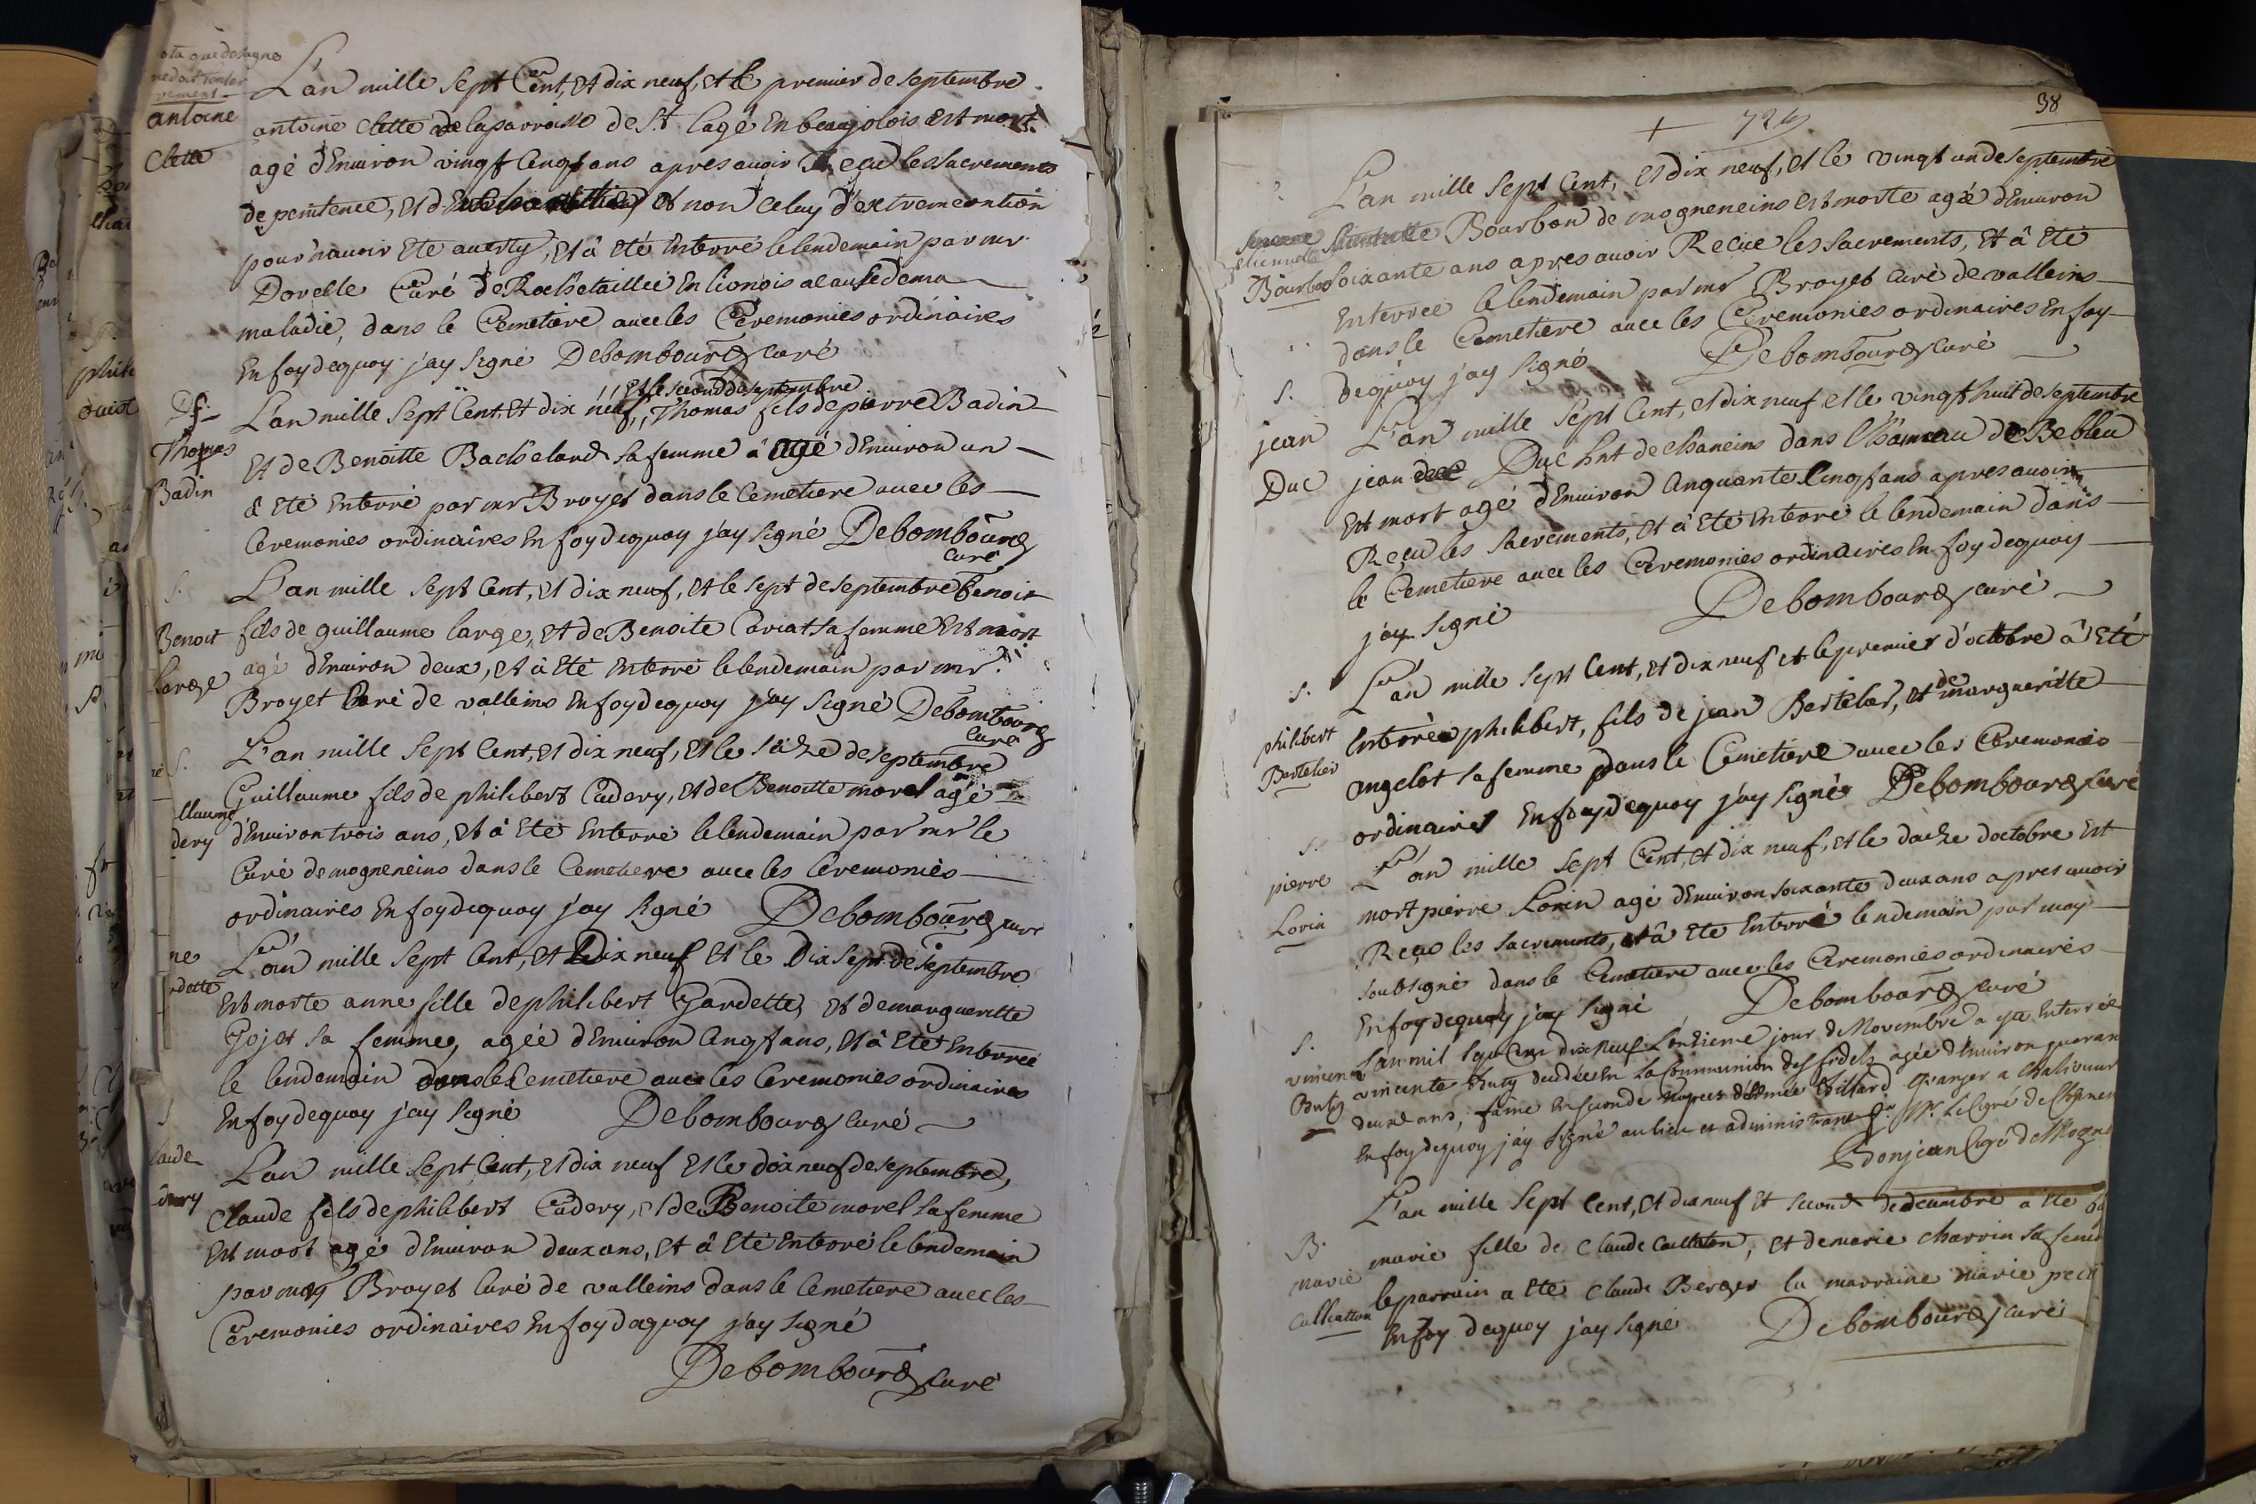 antoine
Clette
L'an mille sept Cent, et dix neuf, et le premier de septembre
antoine Clette de la parroisse de st lagé En beaujolois est mort
agé d'Environ vingt Cinq ans apres avoir Reçu les sacrements
de penitence, et d' et non celuy d'extremeontion
pour n'avoir eté averty, et â eté Enterré le lendemain par mr
Dorelle Curé de Rochetaillée En lionois a cause de ma
maladie, dans le Cemetiere avec les Ceremonies ordinaires
En foy de quoy j'ay signé Debombourg curé
Thomas
Badin
et le second de septembre
L'an mille sept Cent, et dix neuf, Thomas fils de pierre Badin
et de Benoitte Bachelard sa femme â agé d'Environ un
â eté Enterré par mr Broyet dans le Cemetiere avec les
Ceremonies ordinaires En foy de quoy j'ay signé Debombourg
curé
S.
Benoit
large
L'an mille sept Cent, et dix neuf, et le sept de septembre Benoit
fils de guillaume large, et de Benoite Coriat sa femme est mort
agé d'Environ deux, et â eté Enterré le lendemain par mr
Broyet Curé de valleins En foy de quoy j'ay signé Debombourg
curé
S.
llaume
dery
L'an mille sept Cent, et dix neuf, et le seize de septembre
Guillaume fils de philibert Cadery, et de Benoitte morel agé
d'Environ trois ans, et â eté Enterré le lendemain par mr le
Curé de mogneneins dans le Cemetiere avec les Ceremonies
ordinaires En foy de quoy j'ay signé Debombourg curé
ne
rdette
L'an mille sept Cent, et Dix neuf et le Dix sept de septembre
est morte anne fille de philibert Gardette, et de margueritte
Gojet sa femme, agée d'Environ Cinq ans, et â eté Enterrée
le lendemain dans le Cemetiere avec les Ceremonies ordinaires
En foy de quoy j'ay signé Debombourg curé
S
laude
dery
L'an mille sept Cent, et dix neuf et le dix neuf de septembre,
Claude fils de philibert Cadery, et de Benoite morel sa femme
est mort agé d'Environ deux ans, et â eté Enterré le lendemain
par mr Broyet Curé de valleins dans le Cemetiere avec les
Ceremonies ordinaires En foy de quoy j'ay signé
Debombourg curé
38
L'an mille sept Cent, et dix neuf, et le vingt un de septembre
Bourbon
Bourbon de mogneneins est morte agée d'Environ
soixante ans apres avoir Reçue les sacrements, et â eté
Enterrée le lendemain par mr Broyet Curé de valleins
dans le Cemetiere avec les Ceremonies ordinaires En foy
de quoy j'ay signé Debombourg curé
S.
jean
Duc
L'an mille sept Cent, et dix neuf et le vingt huit de septembre
jean Duc hnt de chaneins dans l'hameau de Bebleu
est mort agé d'Environ Cinquante Cinq ans apres avoir
Reçu les sacrements, et â eté Enterré le lendemain dans
le Cemetiere avec les Ceremonies ordinaires En foy de quoy
j'ay signé Debombourg curé
S.
philibert
Bertelier
L'an mille sept Cent, et dix neuf et le premier d'octobre â eté
Enterré philibert, fils de jean Bertelier, et de margueritte
angelot sa femme dans le Cemetiere avec les Ceremonies
ordinaires En foy de quoy j'ay signé Debombourg curé
S.
pierre
Lorin
L'an mille sept Cent, et dix neuf, et le douze d'octobre est
mort pierre Lorin agé d'Environ soixante deux ans apres avoir
Reçu les sacrements, et â eté Enterré le lendemain par moy
soubsigné dans le Cemetiere avec les Ceremonies ordinaires
En foy de quoy j'ay signé Debombourg curé
S.
Buty
L'an mil sept Cens dix neuf L'onzieme jour de Novembre a eté Enterrée
vincente Buty decedée En la Communion des fidels agée d'Environ quaran
deux ans, fame En seconde nopces d'Edmée Billard Granger a Challiouvre
En foy de quoy j'ay signé au lieu et Mr. le Curé de Chanein
Bonjean Curé de Mogne
B.
marie
Callaton
L'an mille sept Cent, et dix neuf et second de decembre a eté ba
marie fille de Claude Callaton, et de marie charvin sa fem
le parrain a eté Claude Berger la marraine marie
En foy de quoy j'ay signé Debombourg curé